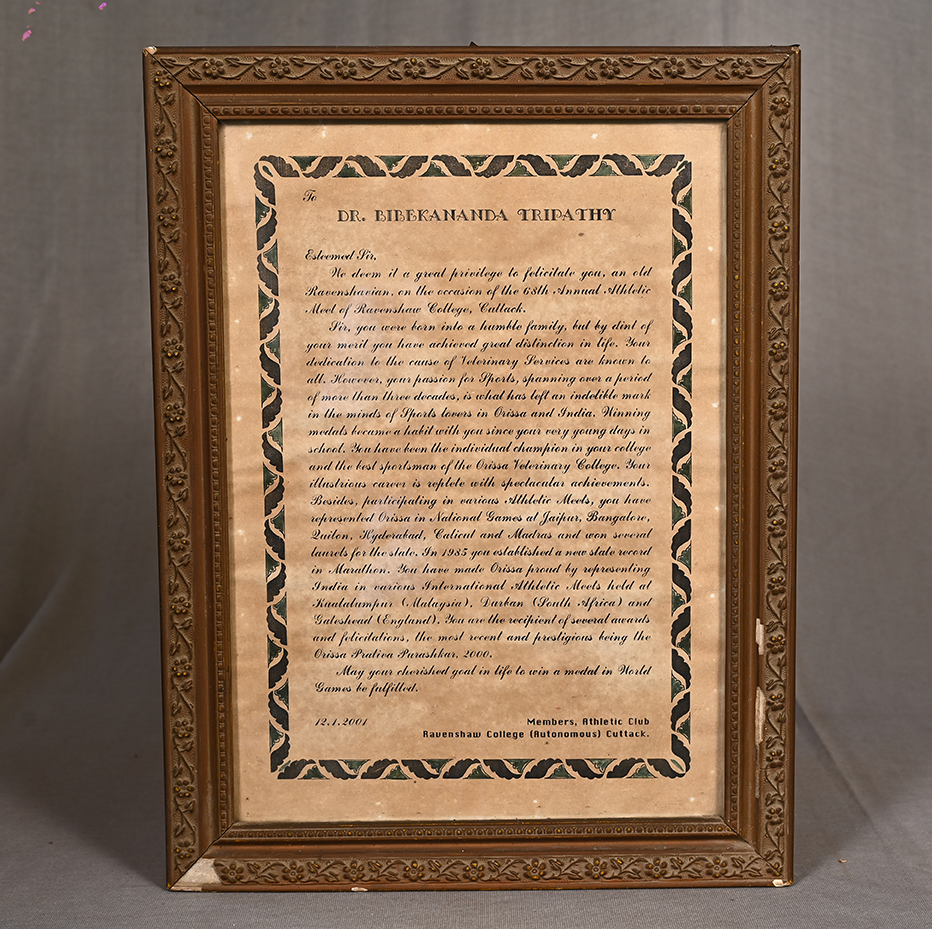 To
DR. BIBEKANANDA TRIPATHY
Esteemed Sir,
We deem it a great privilege to felicitate you, an old
Ravenshavian, on the occasion of the 68th Annual Athletic
Meet of Ravenshaw College, Cuttack.
Sir, you were born into a humble family, but by dint of
your merit you have achieved great distinction in life. Your
dedication to the cause of Veterinary Services are known to
all. However, your passion for Sports, spanning over a period
of more than three decades, is what has left an indelible mark
in the minds of Sports lovers in Orissa and India. Winning
medals became a habit with you since your very young days in
school. You have been the individual champion in your college
and the best sportsman of the Orissa Veterinary College. Your
illustrious career is replete with spectacular achievements.
Besides, participating in various Athletic Meets, you have
represented Orissa in National Games at Jaipur, Bangalore,
Quilon, Hyderabad, Calicut and Madras and won several
laurels for the state. In 1985 you established a new state record
in Marathon. You have made Orissa proud by representing
India in various International Athletic Meets held at
Kualalumpur (Malaysia), Durban (South Africa) and
Gateshead (England). You are the recipient of several awards
and felicitations, the most recent and prestigious being the
Orissa Prativa Purashkar, 2000.
May your cherished goal in life to win a medal in World
Games be fulfilled.
12.1.2001
Members, Athletic Club
Ravenshaw College (Autonomous) Cuttack.